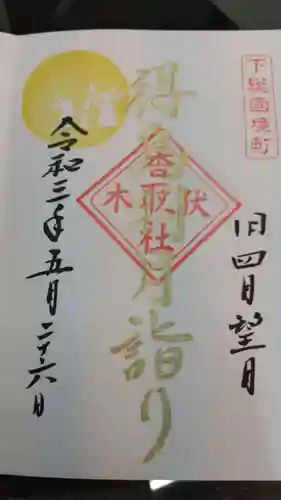 下総國境町
旧四月望月
香取社
伏木
特別月詣り
令和三年五月二十六日